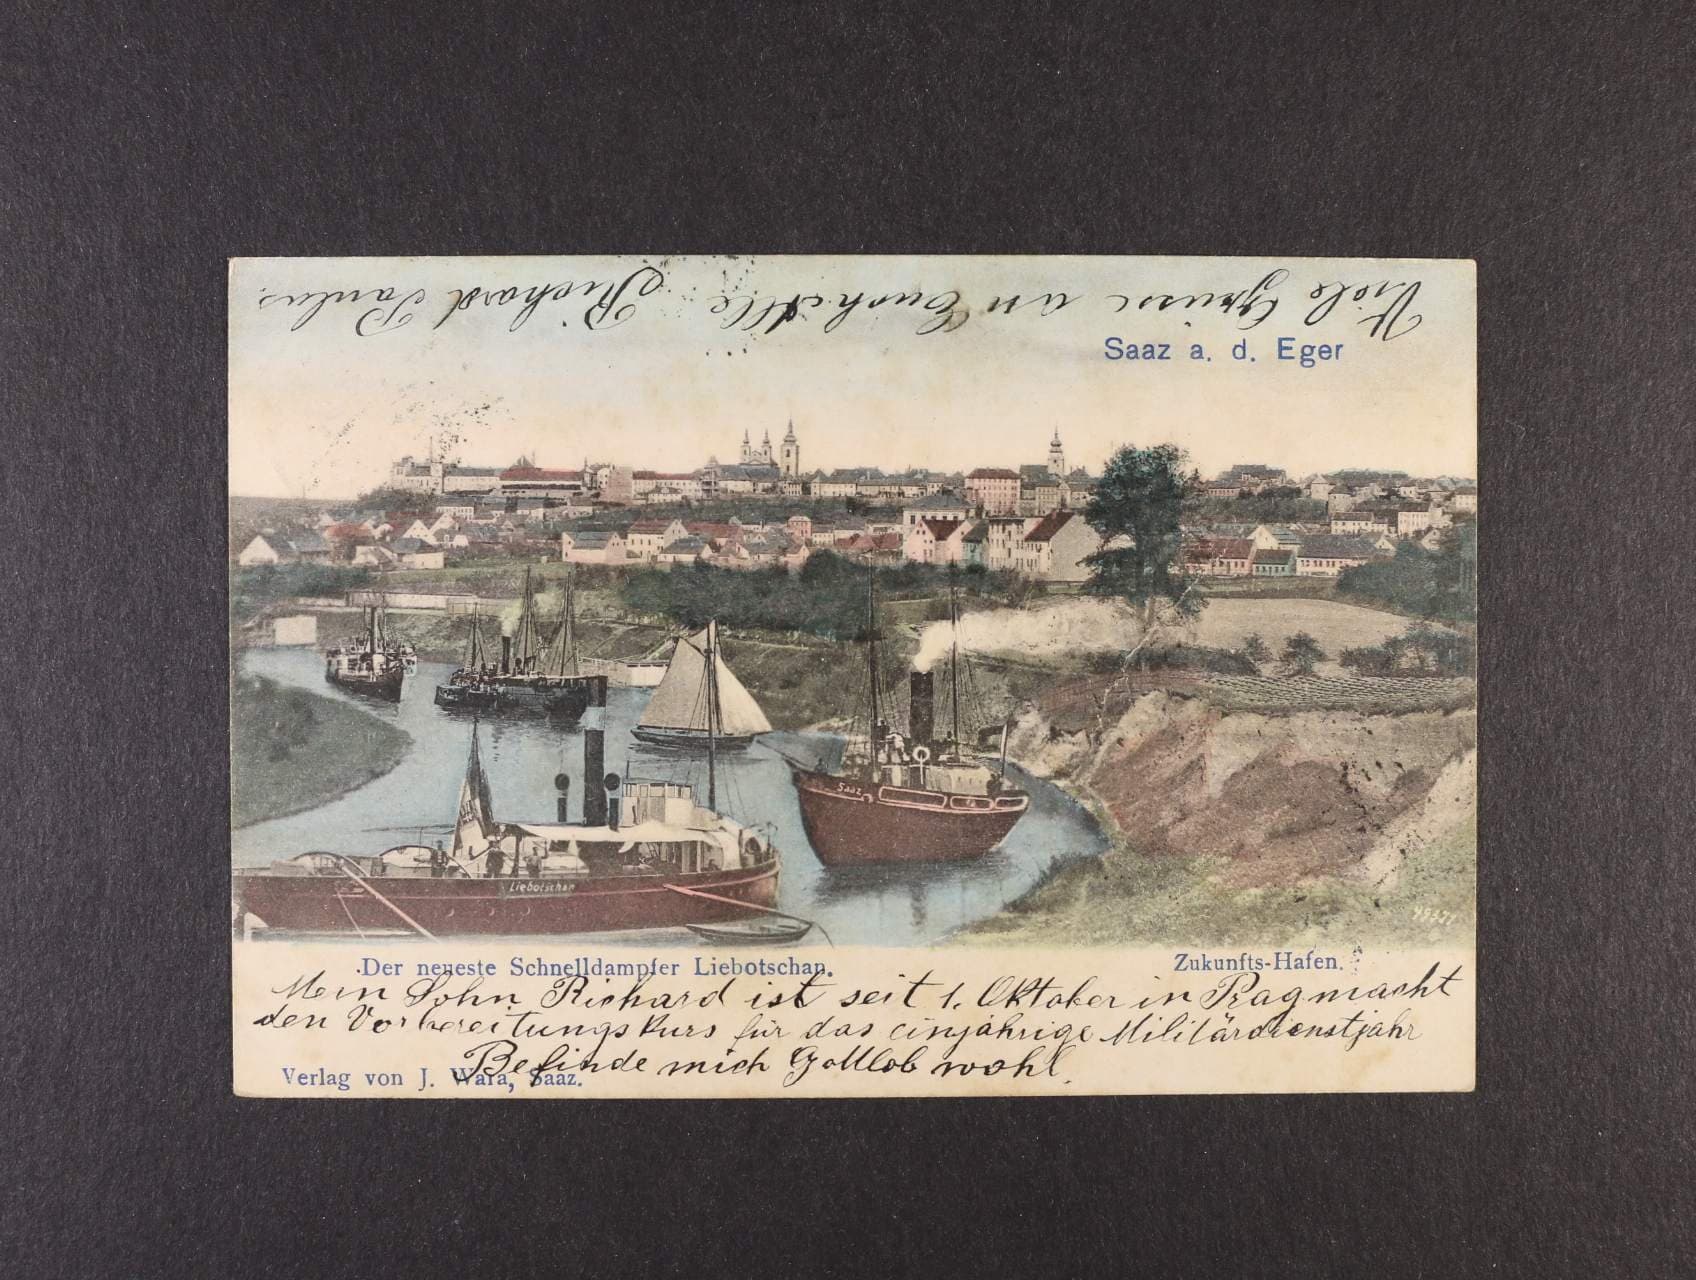 Viele Grüsse an Euch Alle Richard Paulus.
Saaz a. d. Eger
Saaz
Liebotschan
49371
Der neueste Schnelldampfer Liebotschan.
Zukunfts-Hafen.
Mein Sohn Richard ist seit 1. Oktober in Prag macht
den Vorbereitungskurs für das einjährige Militärdienstjahr
Befinde mich Gottlob wohl.
Verlag von J. Wara, Saaz.